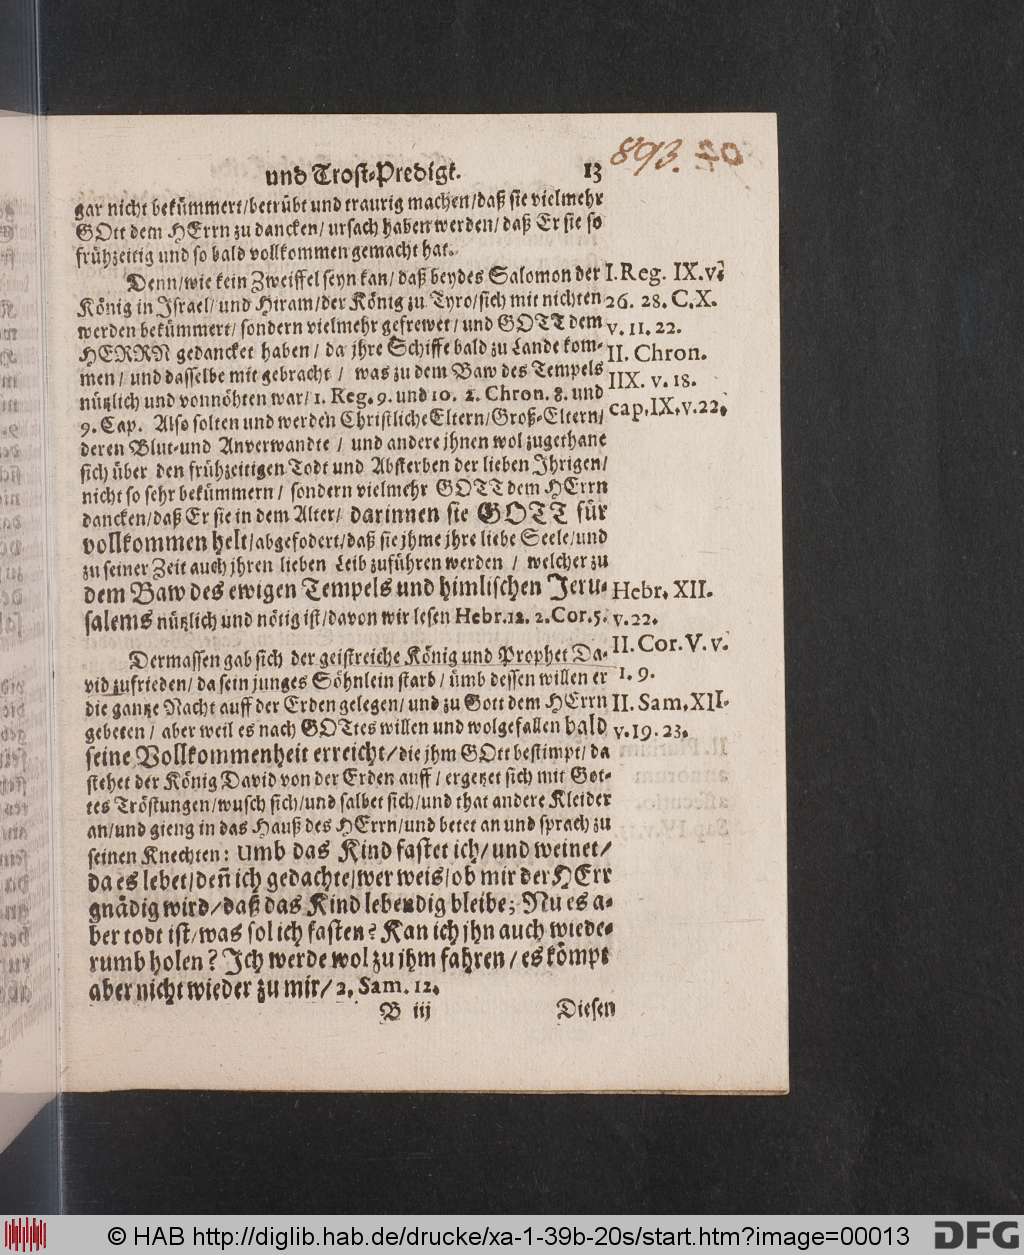 und Trost-Predigt. 13
893. 20
gar nicht bekümmert/betrübt und traurig machen/daß sie vielmehr
GOtt dem HErrn zu dancken/ursach haben werden/daß Er sie so
frühzeitig und so bald vollkommen gemacht hat.
Denn/wie kein Zweiffel seyn kan/daß beydes Salomon der
König in Israel/und Hiram/der König zu Tyro/sich mit nichten
werden bekümmert/sondern vielmehr gefrewet/und GOTT dem
HERRN gedancket haben/da jhre Schiffe bald zu Lande kom-
men/und dasselbe mit gebracht/was zu dem Baw des Tempels
nützlich und vonnöhten war/1. Reg. 9. und 10. 2. Chron. 8. und
9. Cap. Also solten und werden Christliche Eltern/Groß-Eltern/
deren Blut-und Anverwandte/und andere jhnen wol zugethane
sich über den frühzeitigen Todt und Absterben der lieben Jhrigen/
nicht so sehr bekümmern/sondern vielmehr GOTT dem HErrn
dancken/daß Er sie in dem Alter/darinnen sie GOTT für
vollkommen helt/abgefodert/daß sie jhme jhre liebe Seele/und
zu seiner Zeit auch jhren lieben Leib zuführen werden/welcher zu
dem Baw des ewigen Tempels und himlischen Jeru-
salems nützlich und nötig ist/davon wir lesen Hebr. 12. 2. Cor. 5.
Dermassen gab sich der geistreiche König und Prophet Da-
vid zufrieden/da sein junges Söhnlein starb/ümb dessen willen er
die gantze Nacht auff der Erden gelegen/und zu Gott dem HErrn
gebeten/aber weil es nach GOttes willen und wolgefallen bald
seine Vollkommenheit erreicht/die jhm GOtt bestimpt/da
stehet der König David von der Erden auff/ergetzet sich mit Got-
tes Tröstungen/wusch sich/und salbet sich/und that andere Kleider
an/und gieng in das Hauß des HErrn/und betet an und sprach zu
seinen Knechten: Umb das Kind fastet ich/und weinet/
da es lebet/deñ ich gedachte/wer weis/ob mir der HErr
gnädig wird/daß das Kind lebendig bleibe; Nu es a-
ber todt ist/was sol ich fasten? Kan ich jhn auch wiede-
rumb holen? Jch werde wol zu jhm fahren/es kömpt
aber nicht wieder zu mir/2. Sam. 12.
B iij Diesen
I. Reg. IX. v.
26. 28. C. X.
v. 11. 22.
II. Chron.
IIX. v. 18.
cap. IX. v. 22.
Hebr. XII.
v. 22.
II. Cor. V. v.
1. 9.
II. Sam. XII.
v. 19. 23.
© HAB http://diglib.hab.de/drucke/xa-1-39b-20s/start.htm?image=00013
DFG